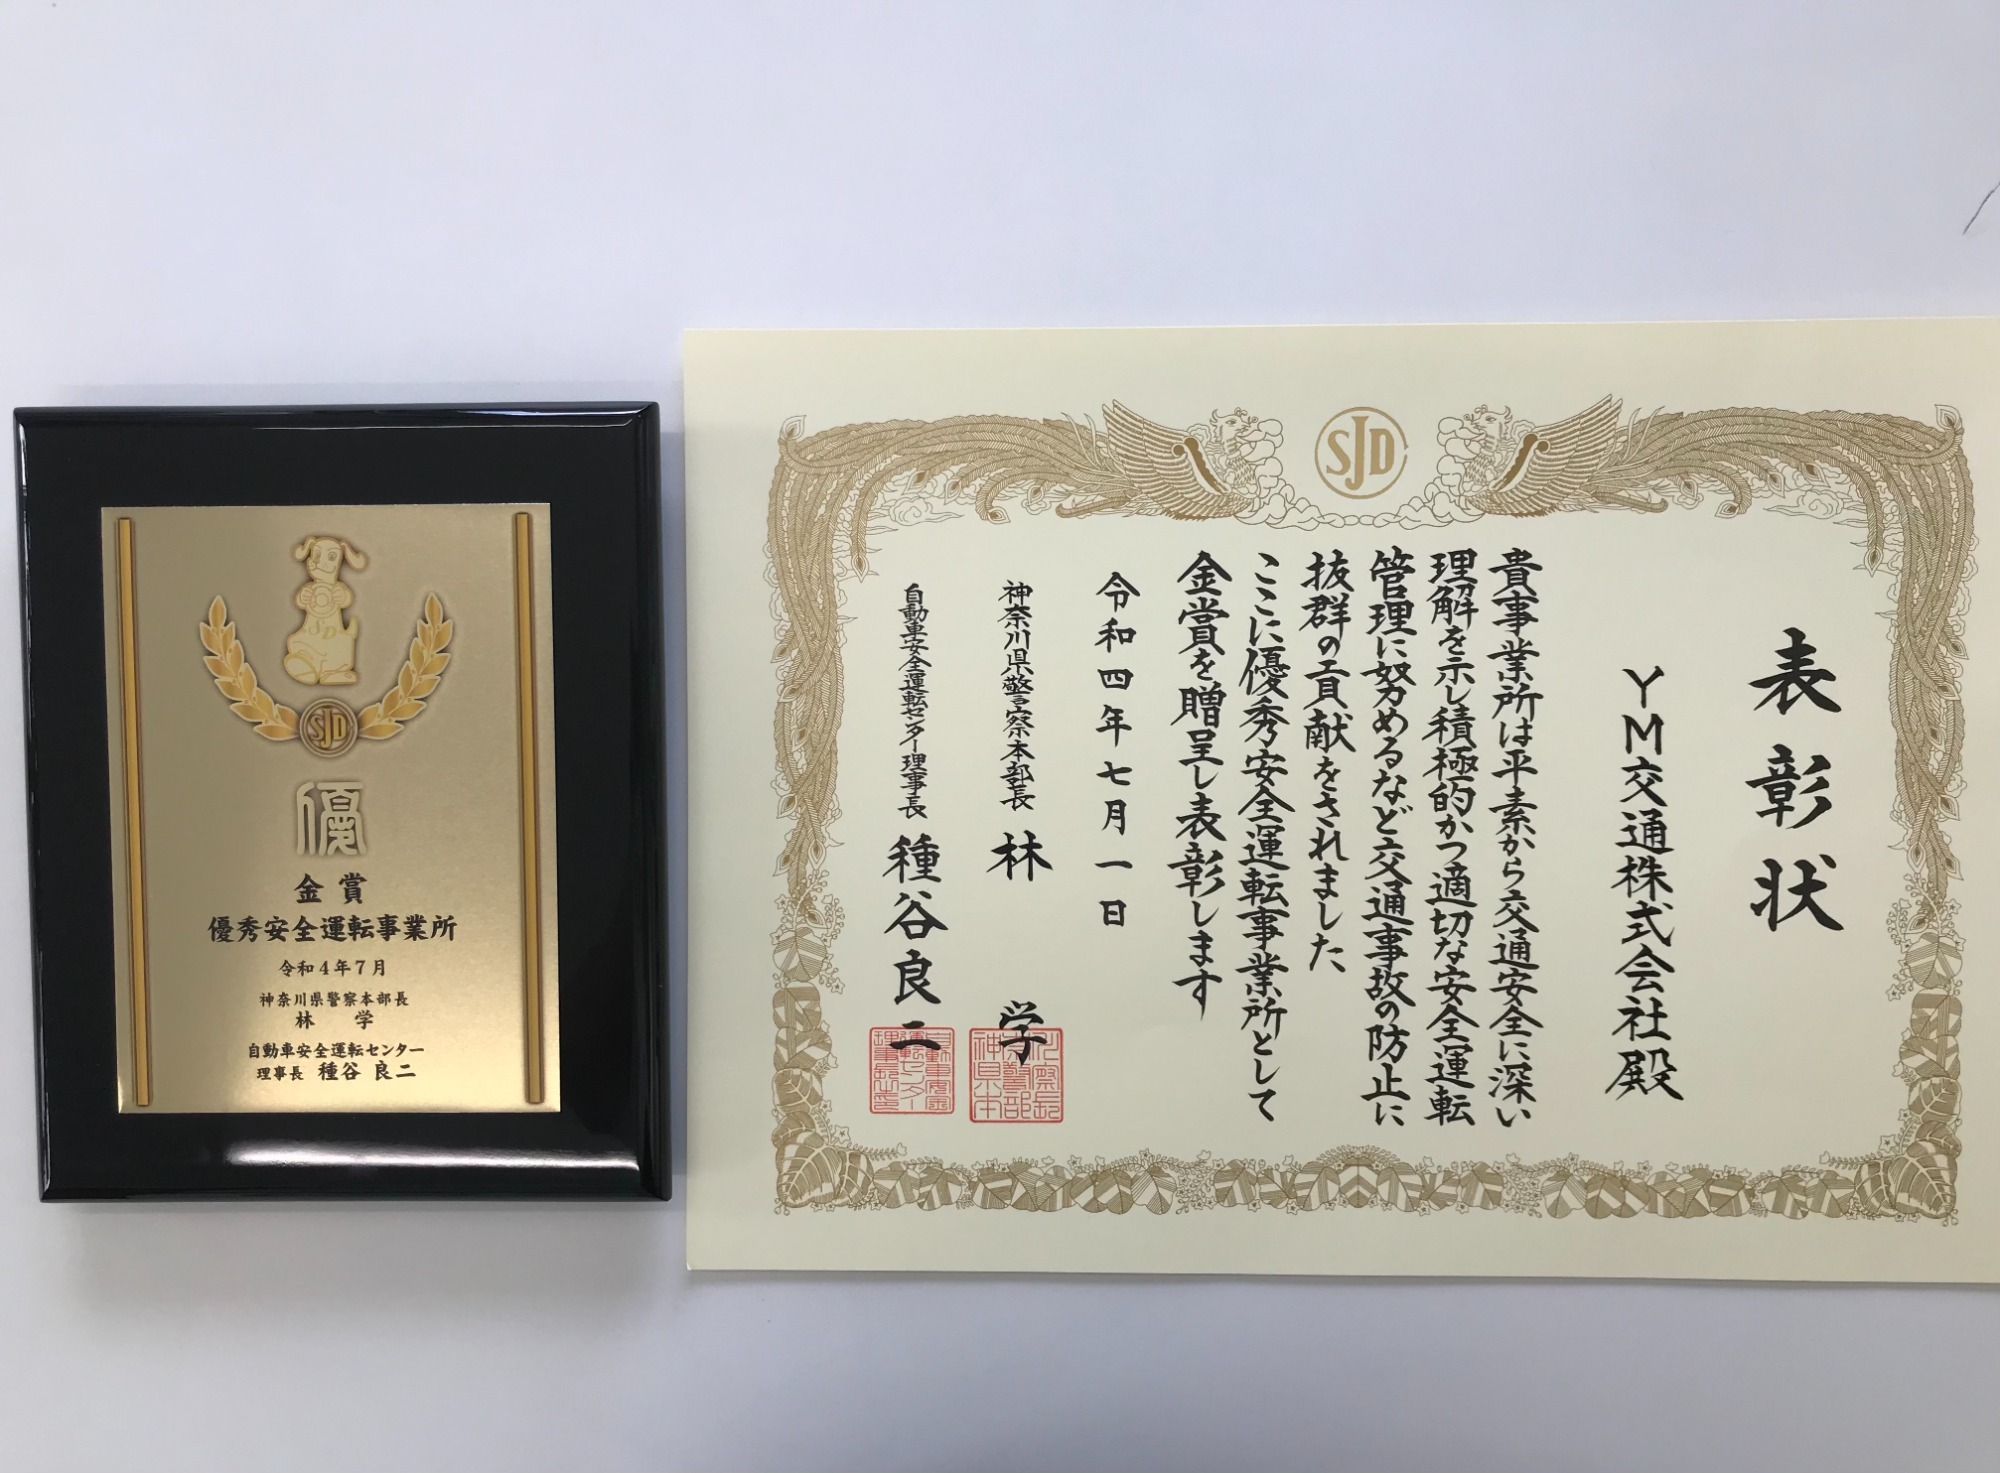 SJD
優
金賞
優秀安全運転事業所
令和4年7月
神奈川県警察本部長
林　学
自動車安全運転センター
理事長 種谷 良二
SJD
表彰状
YM交通株式会社殿
貴事業所は平素から交通安全に深い
理解を示し積極的かつ適切な安全運転
管理に努めるなど交通事故の防止に
抜群の貢献をされました、
ここに優秀安全運転事業所として
金賞を贈呈し表彰します
令和四年七月一日
神奈川県警察本部長 林　学
自動車安全運転センター理事長 種谷良二